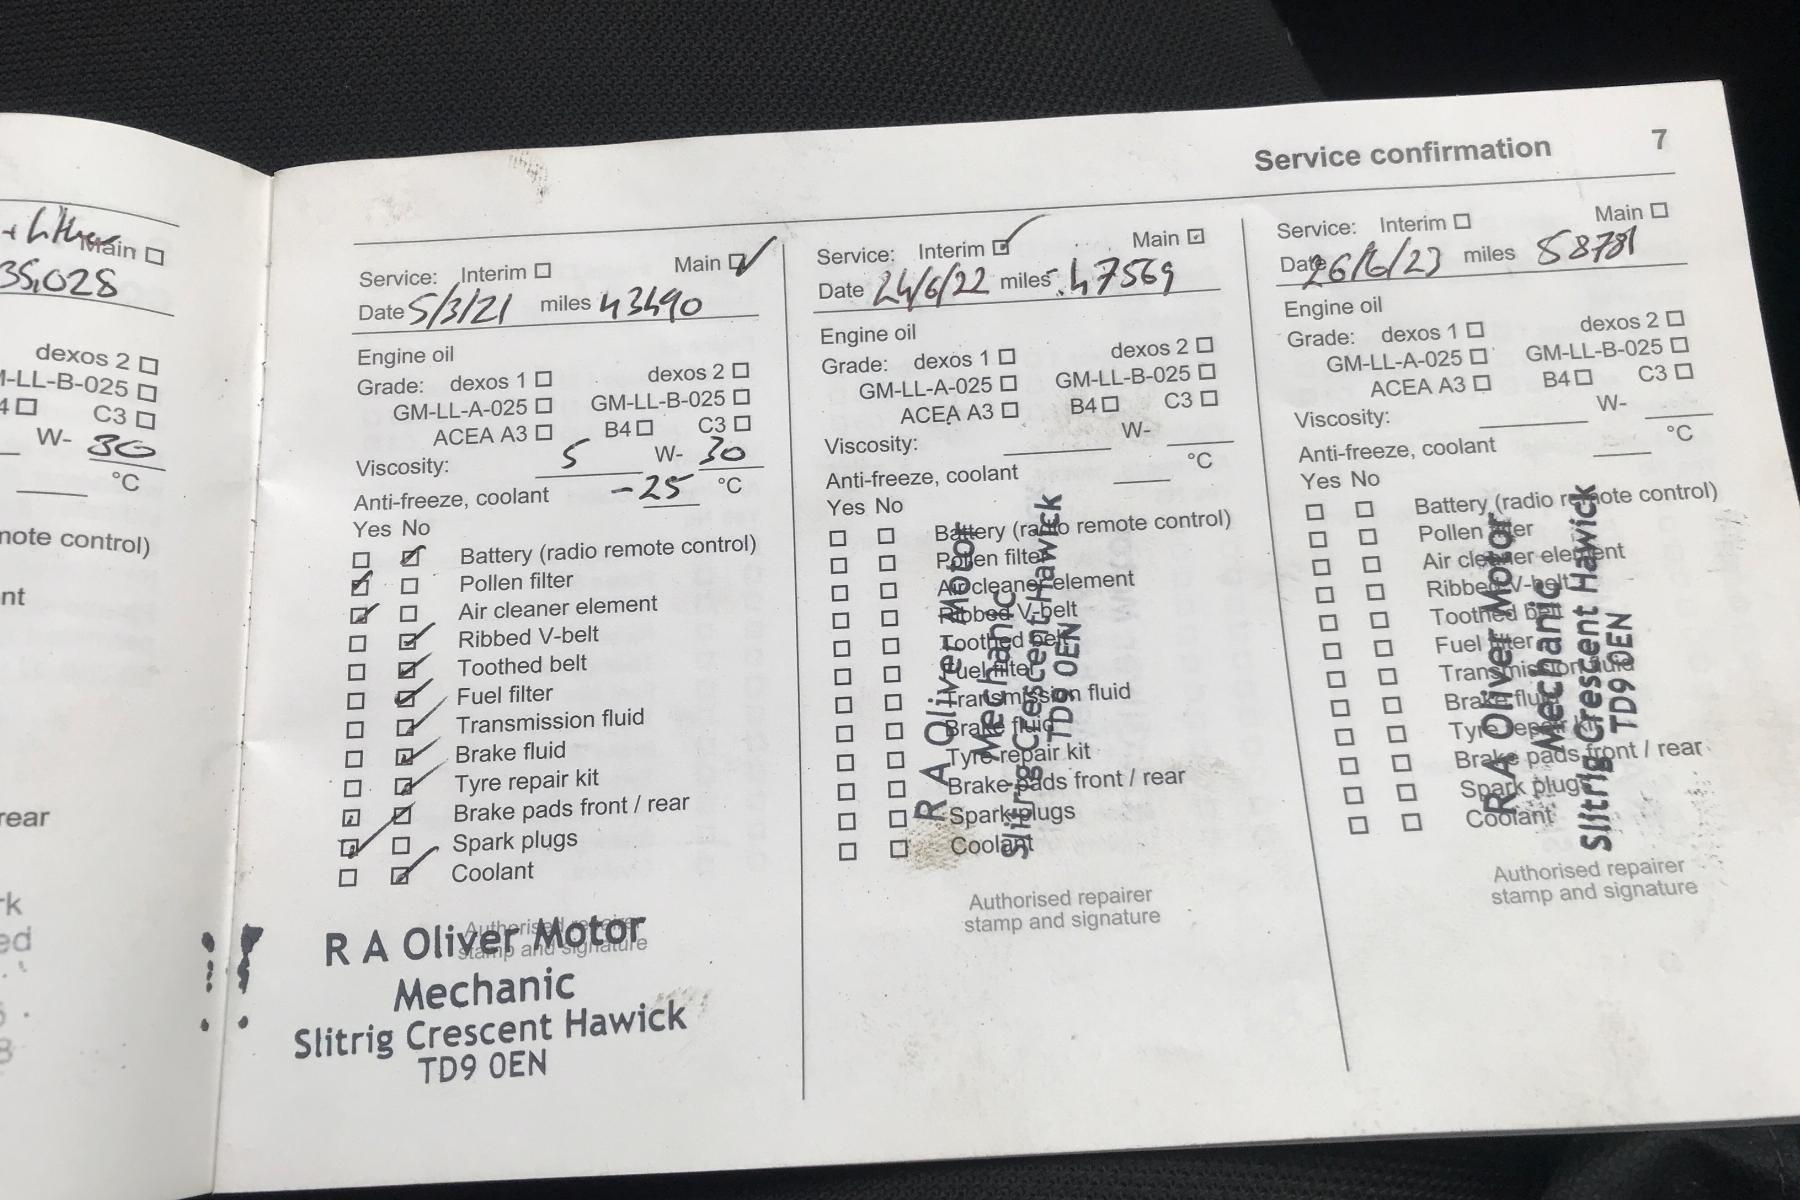 Main
35,028
dexos 2
M-LL-B-025
C3
W- 30
°C
mote control)
nt
rear
Service confirmation 7
Service: Interim Main
Date 5/3/21 miles 43490
Engine oil
Grade: dexos 1 dexos 2
GM-LL-A-025 GM-LL-B-025
ACEA A3 B4 C3
Viscosity: 5 W- 30
Anti-freeze, coolant -25 °C
Yes No
Battery (radio remote control)
Pollen filter
Air cleaner element
Ribbed V-belt
Toothed belt
Fuel filter
Transmission fluid
Brake fluid
Tyre repair kit
Brake pads front / rear
Spark plugs
Coolant
Authorised repairer
stamp and signature
R A Oliver Motor
Mechanic
Slitrig Crescent Hawick
TD9 0EN
Service: Interim Main
Date 24/6/22 miles 47569
Engine oil
Grade: dexos 1 dexos 2
GM-LL-A-025 GM-LL-B-025
ACEA A3 B4 C3
Viscosity: W-
Anti-freeze, coolant °C
Yes No
Battery (radio remote control)
Pollen filter
Air cleaner element
Ribbed V-belt
Toothed belt
Fuel filter
Transmission fluid
Brake fluid
Tyre repair kit
Brake pads front / rear
Spark plugs
Coolant
R A Oliver Motor
Mechanic
Slitrig Crescent Hawick
TD9 0EN
Authorised repairer
stamp and signature
Service: Interim Main
Date 26/6/23 miles 58781
Engine oil
Grade: dexos 1 dexos 2
GM-LL-A-025 GM-LL-B-025
ACEA A3 B4 C3
Viscosity: W-
Anti-freeze, coolant °C
Yes No
Battery (radio remote control)
Pollen filter
Air cleaner element
Ribbed V-belt
Toothed belt
Fuel filter
Transmission fluid
Brake fluid
Tyre repair kit
Brake pads front / rear
Spark plugs
Coolant
R A Oliver Motor
Mechanic
Slitrig Crescent Hawick
TD9 0EN
Authorised repairer
stamp and signature